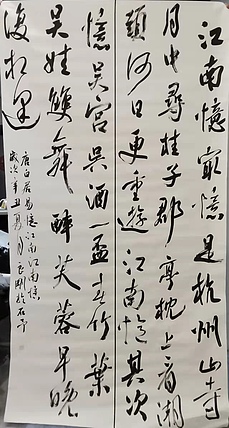 江南憶最憶是杭州山寺
月中尋桂子郡亭枕上看潮
頭何日更重遊江南憶其次
憶吳宮吳酒一盃春竹葉
吳娃雙舞醉芙蓉早晚
復相逢
唐白居易憶江南江南憶
歲次辛丑夏月